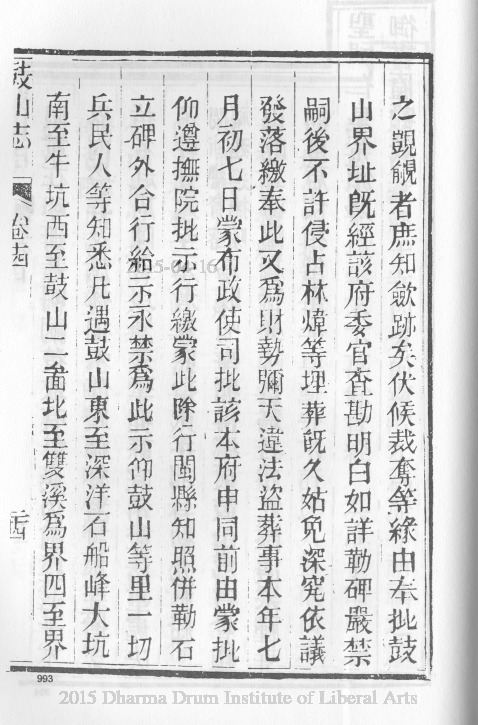 之覬覦者庶知歛跡矣伏候裁奪等緣由奉批鼓
山界址旣經該府委官查勘明白如詳勒碑嚴禁
嗣後不許侵占林煒等埋葬旣久姑免深究依議
發落繳奉此又爲財勢彌天違法盜葬事本年七
月初七日蒙布政使司批該本府申同前由蒙批
仰遵撫院批示行繳蒙此除行閩縣知照併勒石
立碑外合行給示永禁爲此示仰鼓山等里一切
兵民人等知悉凡遇鼓山東至深洋石船峰大坑
南至牛坑西至鼓山二畨北至雙溪爲界四至界
鼓山志
卷
993
2015 Dharma Drum Institute of Liberal Arts